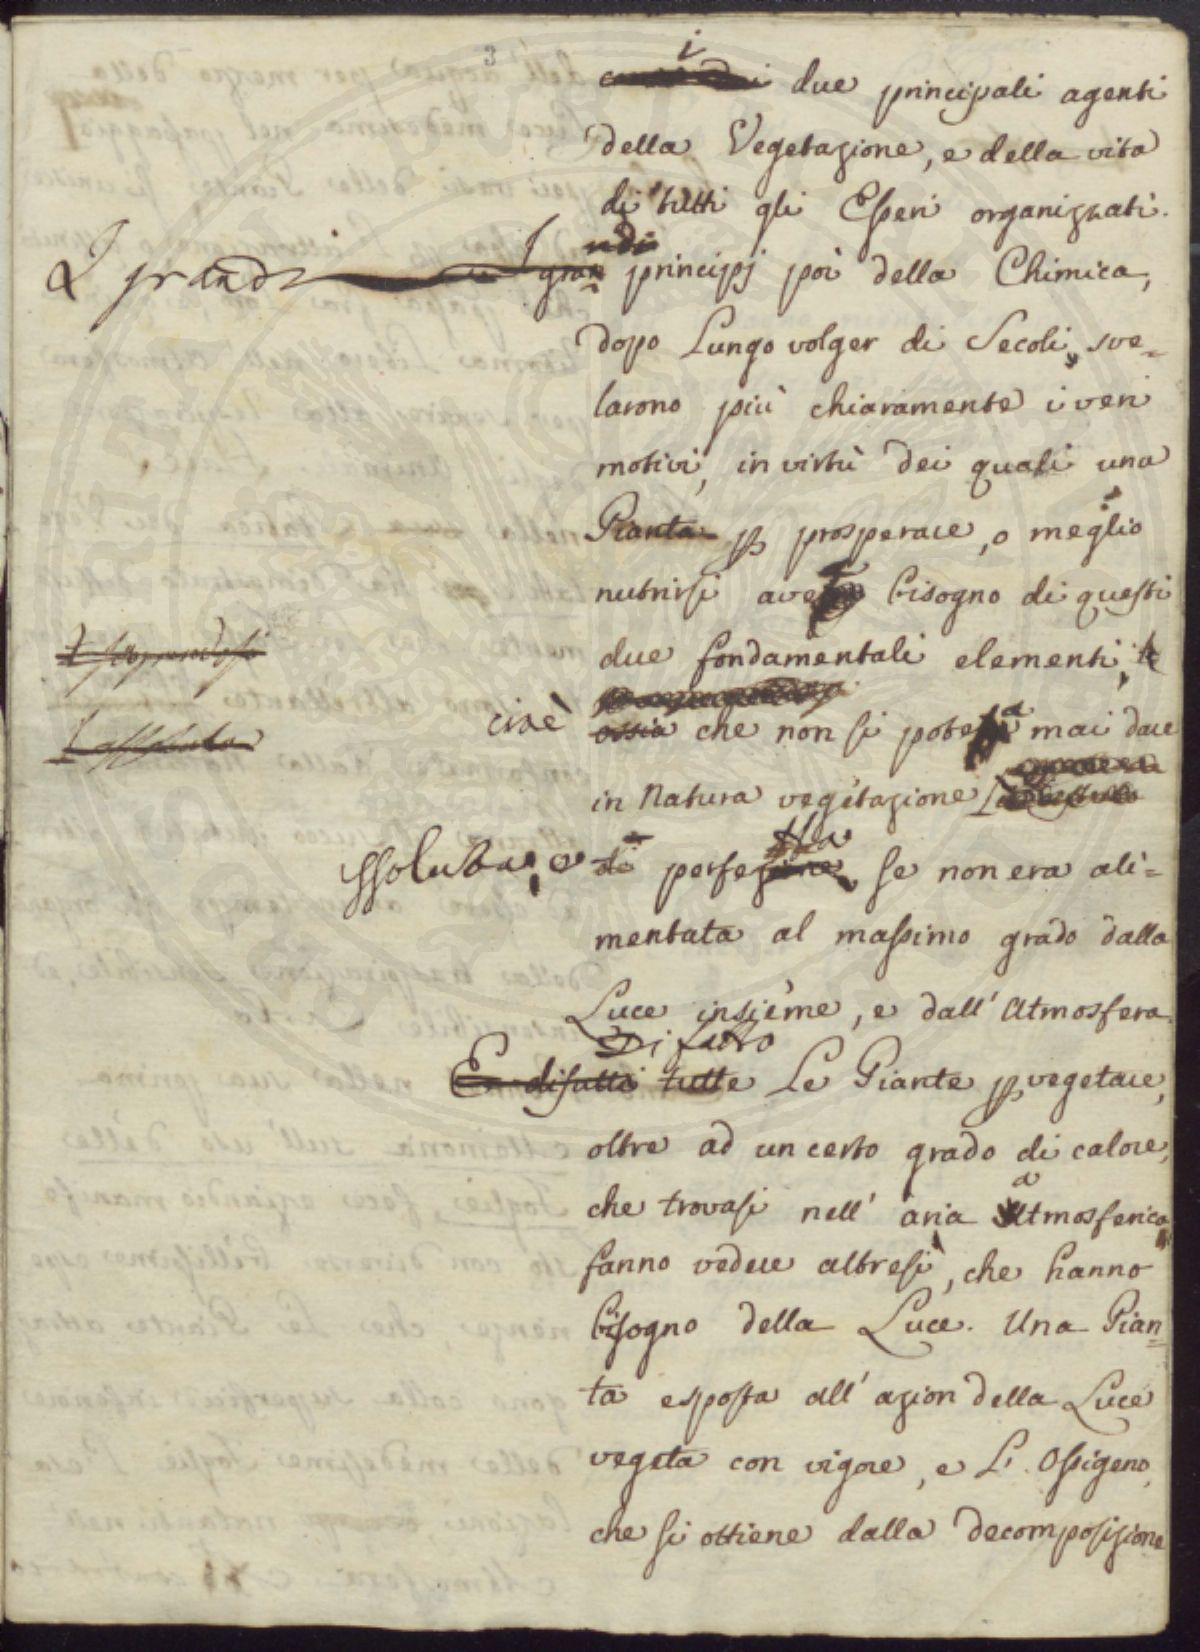 3
i
due principali agenti
della Vegetazione, e della vita
di tutti gli Esseri organizzati.
I grandi
I grandi principj poi della Chimica,
dopo Lungo volger di Secoli, sve=
larono più chiaramente i veri
motivi, in virtù dei quali una
Pianta p prosperare, o meglio
nutrirsi ave bisogno di questi
due fondamentali elementi,
cioè ossia che non si potea mai dare
in Natura vegetazione
ssoluta, e di perfetta, se non era ali=
mentata al massimo grado dalla
Luce insieme, e dall' Atmosfera.
Di fatto
En difatti tutte Le Piante p vegetare,
oltre ad un certo grado di calore,
che trovasi nell' aria atmosferica,
fanno vedere altresì, che hanno
bisogno della Luce. Una Pian=
ta esposta all' azion della Luce
vegeta con vigore, e L'Ossigeno,
che si ottiene dalla decomposizione